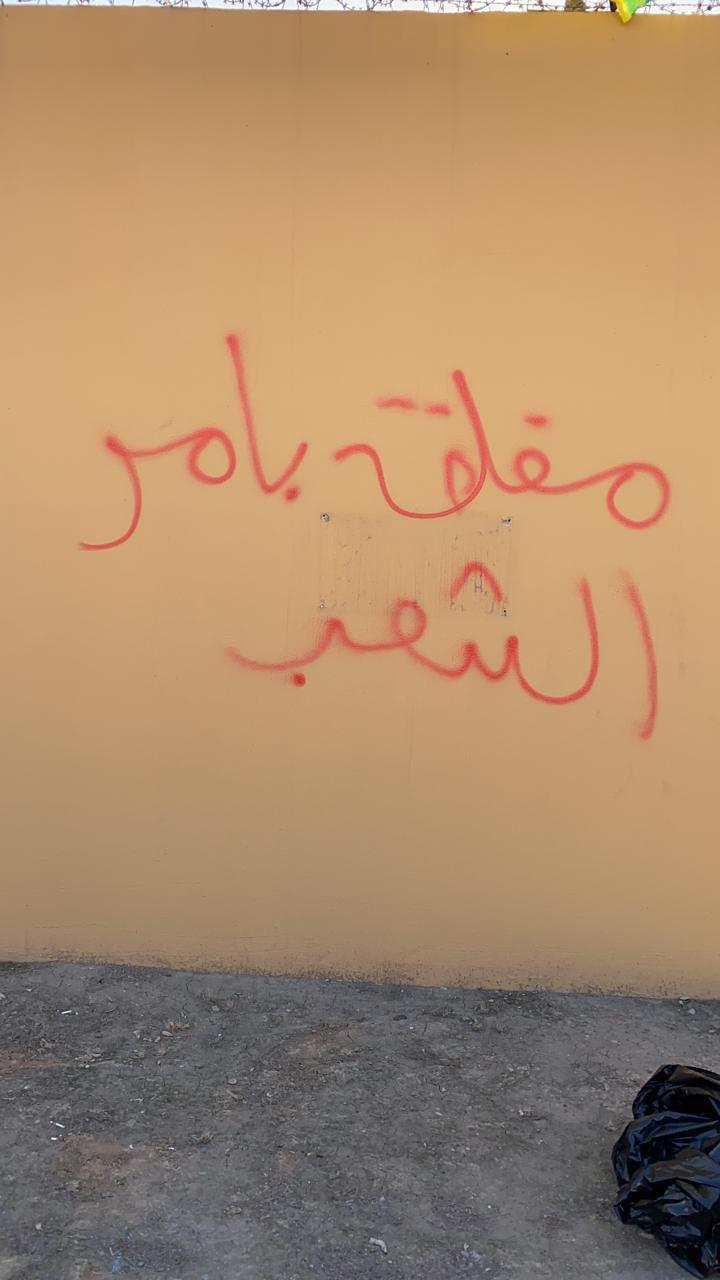 مغلق بامر
الشعب